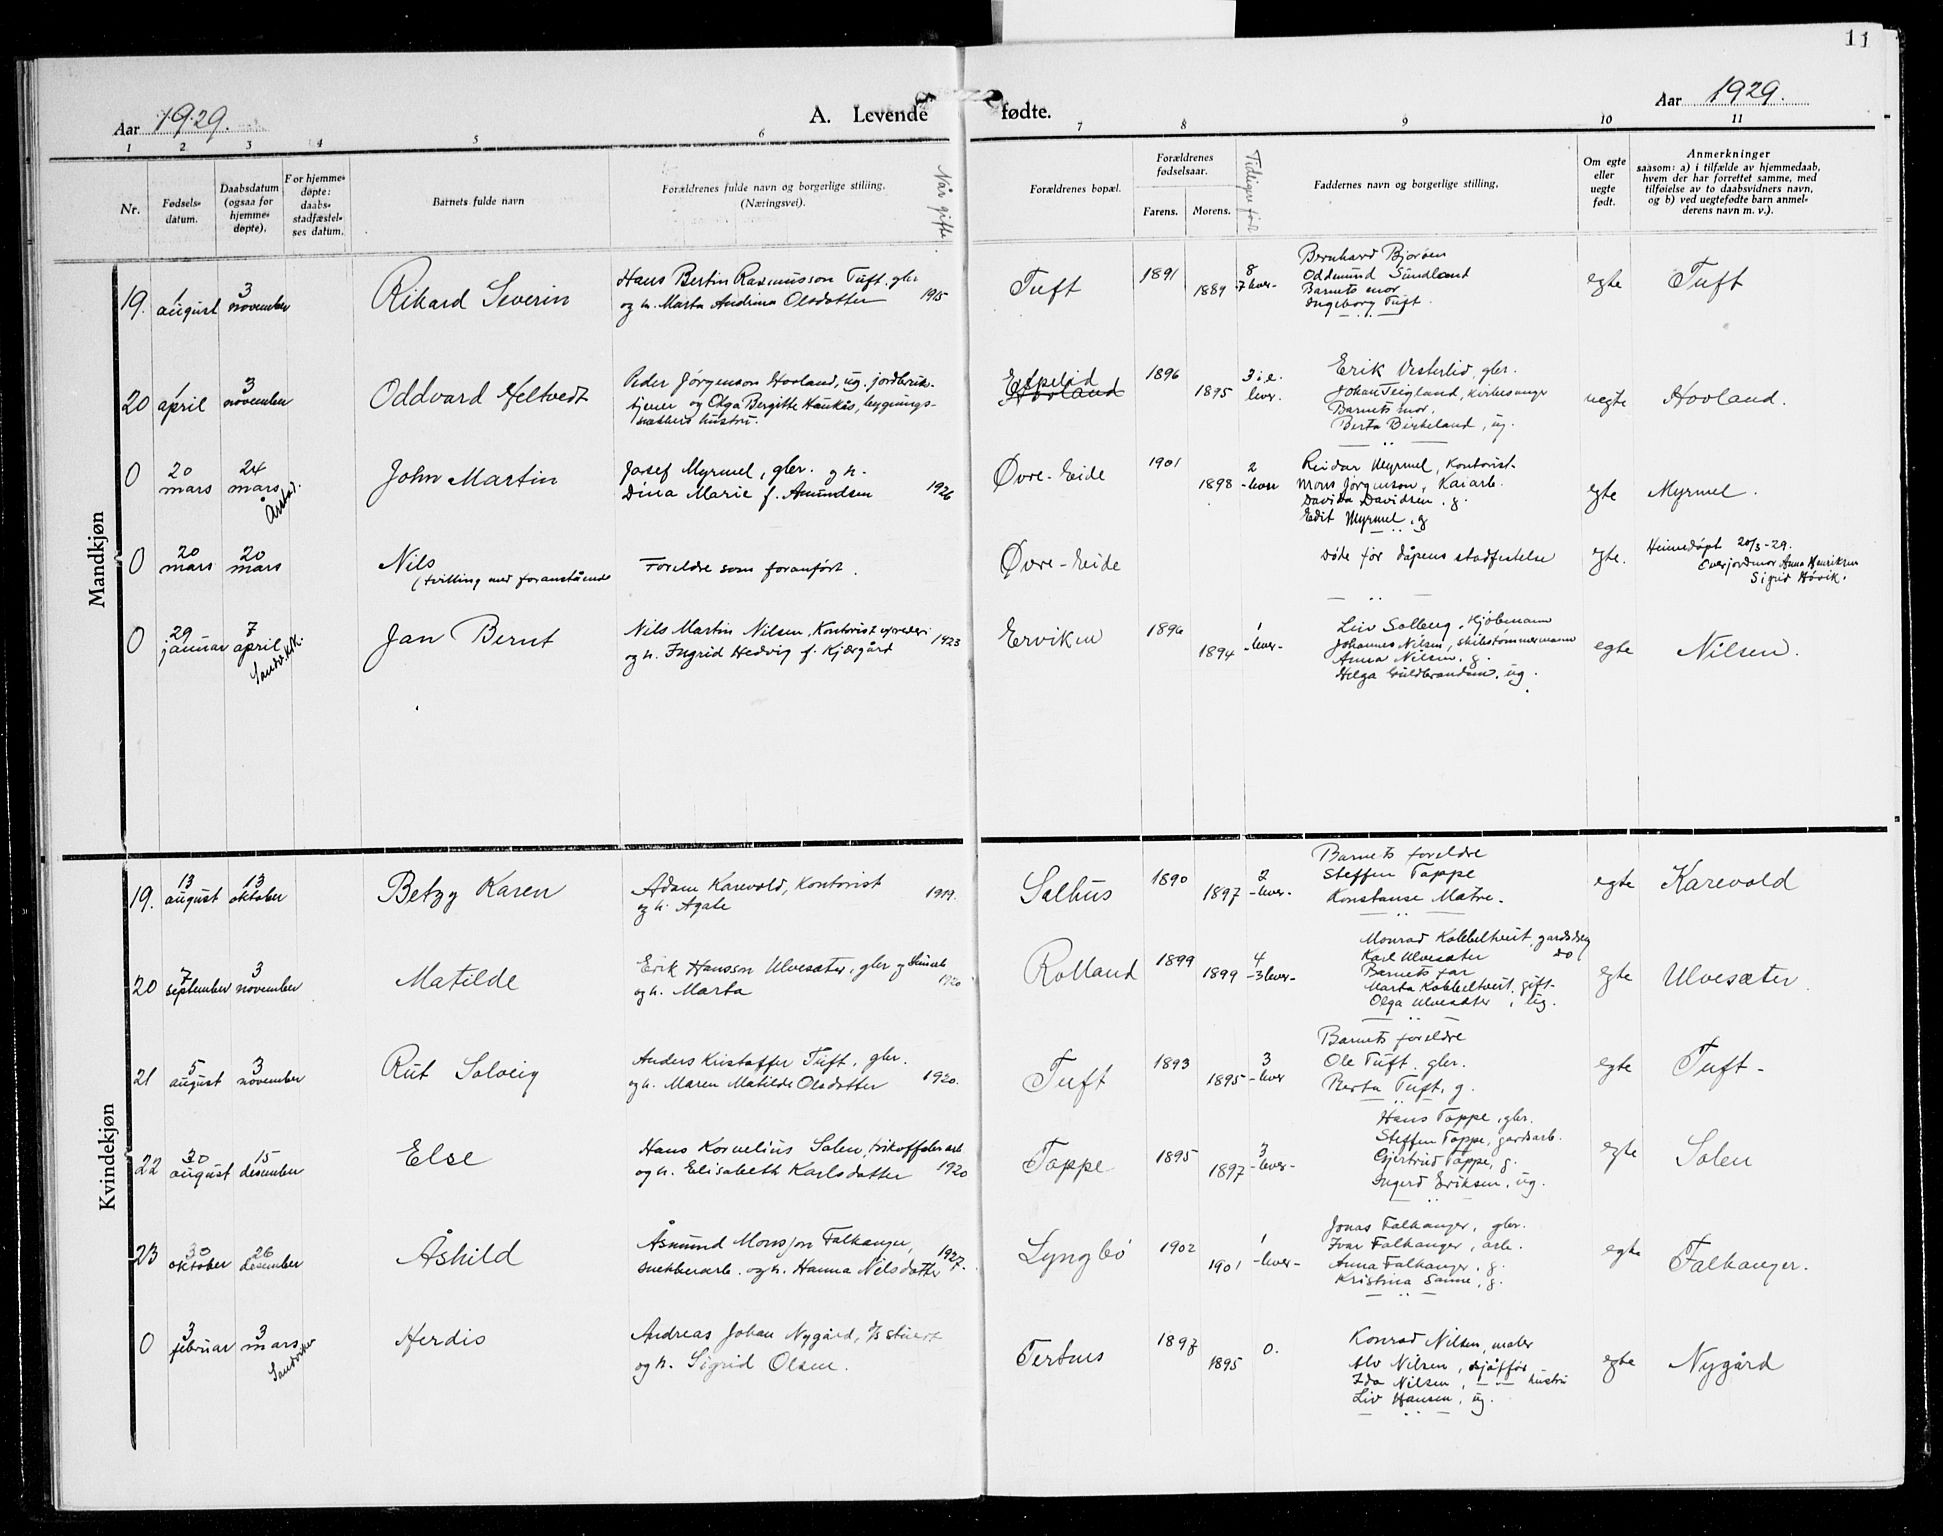 11
Aar 1929.
A. Levende fødte.
Aar 1929.
1 2 3 4 5 6 7 8 9 10 11
Nr.
Fødselsdatum.
Daabsdatum (ogsaa for hjemmedøpte).
For hjemmedøpte: daabsstadfæstelses datum.
Barnets fulde navn
Forældrenes fulde navn og borgerlige stilling. (Næringsvei).
Når gifte.
Forældrenes bopæl.
Forældrenes fødselsaar.
Farens. Morens.
Tidligere født
Faddernes navn og borgerlige stilling.
Om egte eller uegte født.
Anmerkninger
saasom: a) i tilfælde av hjemmedaab, hvem der har forrettet samme, med tilføielse av to daabsvidners navn, og b) ved uegtefødte barn anmelderens navn m. v.).
Mandkjøn
19. 1 august 3 november
Rikard Severin
Hans Bertin Rasmusson Tuft, glr
og h. Marta Andina Olsdatter 1915
Tuft 1891 1889 8 -7 lever-
Bernhard Bjorøen
Oddmund Sundland
Barnets mor
Ingeborg Tuft.
egte Tuft
20 1 april 3 november
Oddvard Heltvedt
Peder Jørgenson Hovland, ug. jordbruk-
tjener og Olga Bergitte Haukås, bygnings-
hustru.
Espelid
Hovland
1896 1895 3 i e. lever.
Erik Vesterlid, glr.
Johan Teigland, kirkesanger
Barnets mor.
Berta Birkeland, ug.
uegte Hovland.
0 20 mars 24 mars Årstad.
John Martin
Josef Myrmel, gler. og h.
Dina Marie f. Amundsen 1926
Øvre-Eide 1901 1898 2 -lever
Reidar Myrmel, Kontorist
Mons Jørgenson, Kaiarb.
Davida Davidsen. g.
Edit Myrmel. g
egte Myrmel.
0 20 mars 20 mars
Nils
(tvilling med foranstående
Foreldre som foranført.
Øvre-Eide
Døde før dåpens stadfestelse
egte.
Heimedøpt 20/3-29.
Overjordmor Anna Henriksen
Sigrid Høvik.
0 29 januar 7 april Sandvikk.
Jan Bernt
Nils Martin Nilsen, Kontorist
og h. Ingrid Hedvig f. Kjærgård 1923
Erviken 1896 1894 1 -lever-
Liv Solberg,
Johannes Nilsen, skibstømmermann
Anna Nilsen, g.
Helga Guldbrandsen, ug.
egte Nilsen.
Kvindekjøn
19. 13 august 13 oktober
Betzy Karen
Adam Karevold, Kontorist
og h. Agate 1919.
Salhus 1890 1897 2 -lever-
Barnets foreldre
Steffen Toppe
Konstanse Matre.
egte Karevold
20 7 september 3 november
Matilde
Erik Hansson Ulvesæter, gler og
og h. Marta 1920
Rolland 1899 1899 4 -3 lever-
Monrad Kobbeltveit, gardsdrg
Karl Ulvesæter do
Barnets far
Marta Kobbeltveit, gift-
Olga Ulvesæter, ug.
egte Ulvesæter
21 5 august 3 november
Rut Solveig
Anders Kristoffer Tuft, gler.
og h. Maren Matilde Olsdatter 1920.
Tuft 1893 1895 3 -lever
Barnets foreldre
Ole Tuft, gler.
Berta Tuft, g.
egte Tuft-
22 30 august 15 desember
Else
Hans Kornelius Solen,
og h. Elisabeth Karlsdatter 1920
Toppe 1895 1897 3 -lever-
Hans Toppe, gler.
Steffen Toppe, gardsarb.
Gjertrud Toppe, g.
Ingerd Eriksen, ug.
egte Solen
23 30 oktober 26 desember
Åshild
Åsmund Monsson Falkanger,
snekkerarb. og h. Hanna Nilsdatter 1927.
Lyngbø 1902 1901 1 -lever-
Jonas Falkanger, gler.
Ivar Falkanger, arb.
Anna Falkanger, g.
Kristina Sanne, g.
egte Falkanger.
0 3 februar 3 mars Sandviken
Herdis
Andreas Johan Nygård, d/s stuert
og h. Sigrid Olsen.
Tertnes 1897 1895 0.
Konrad Nilsen, maler
Alv Nilsen, sjåffør
Ida Nilsen, — — hustru
Liv Hansen, ug.
egte Nygård